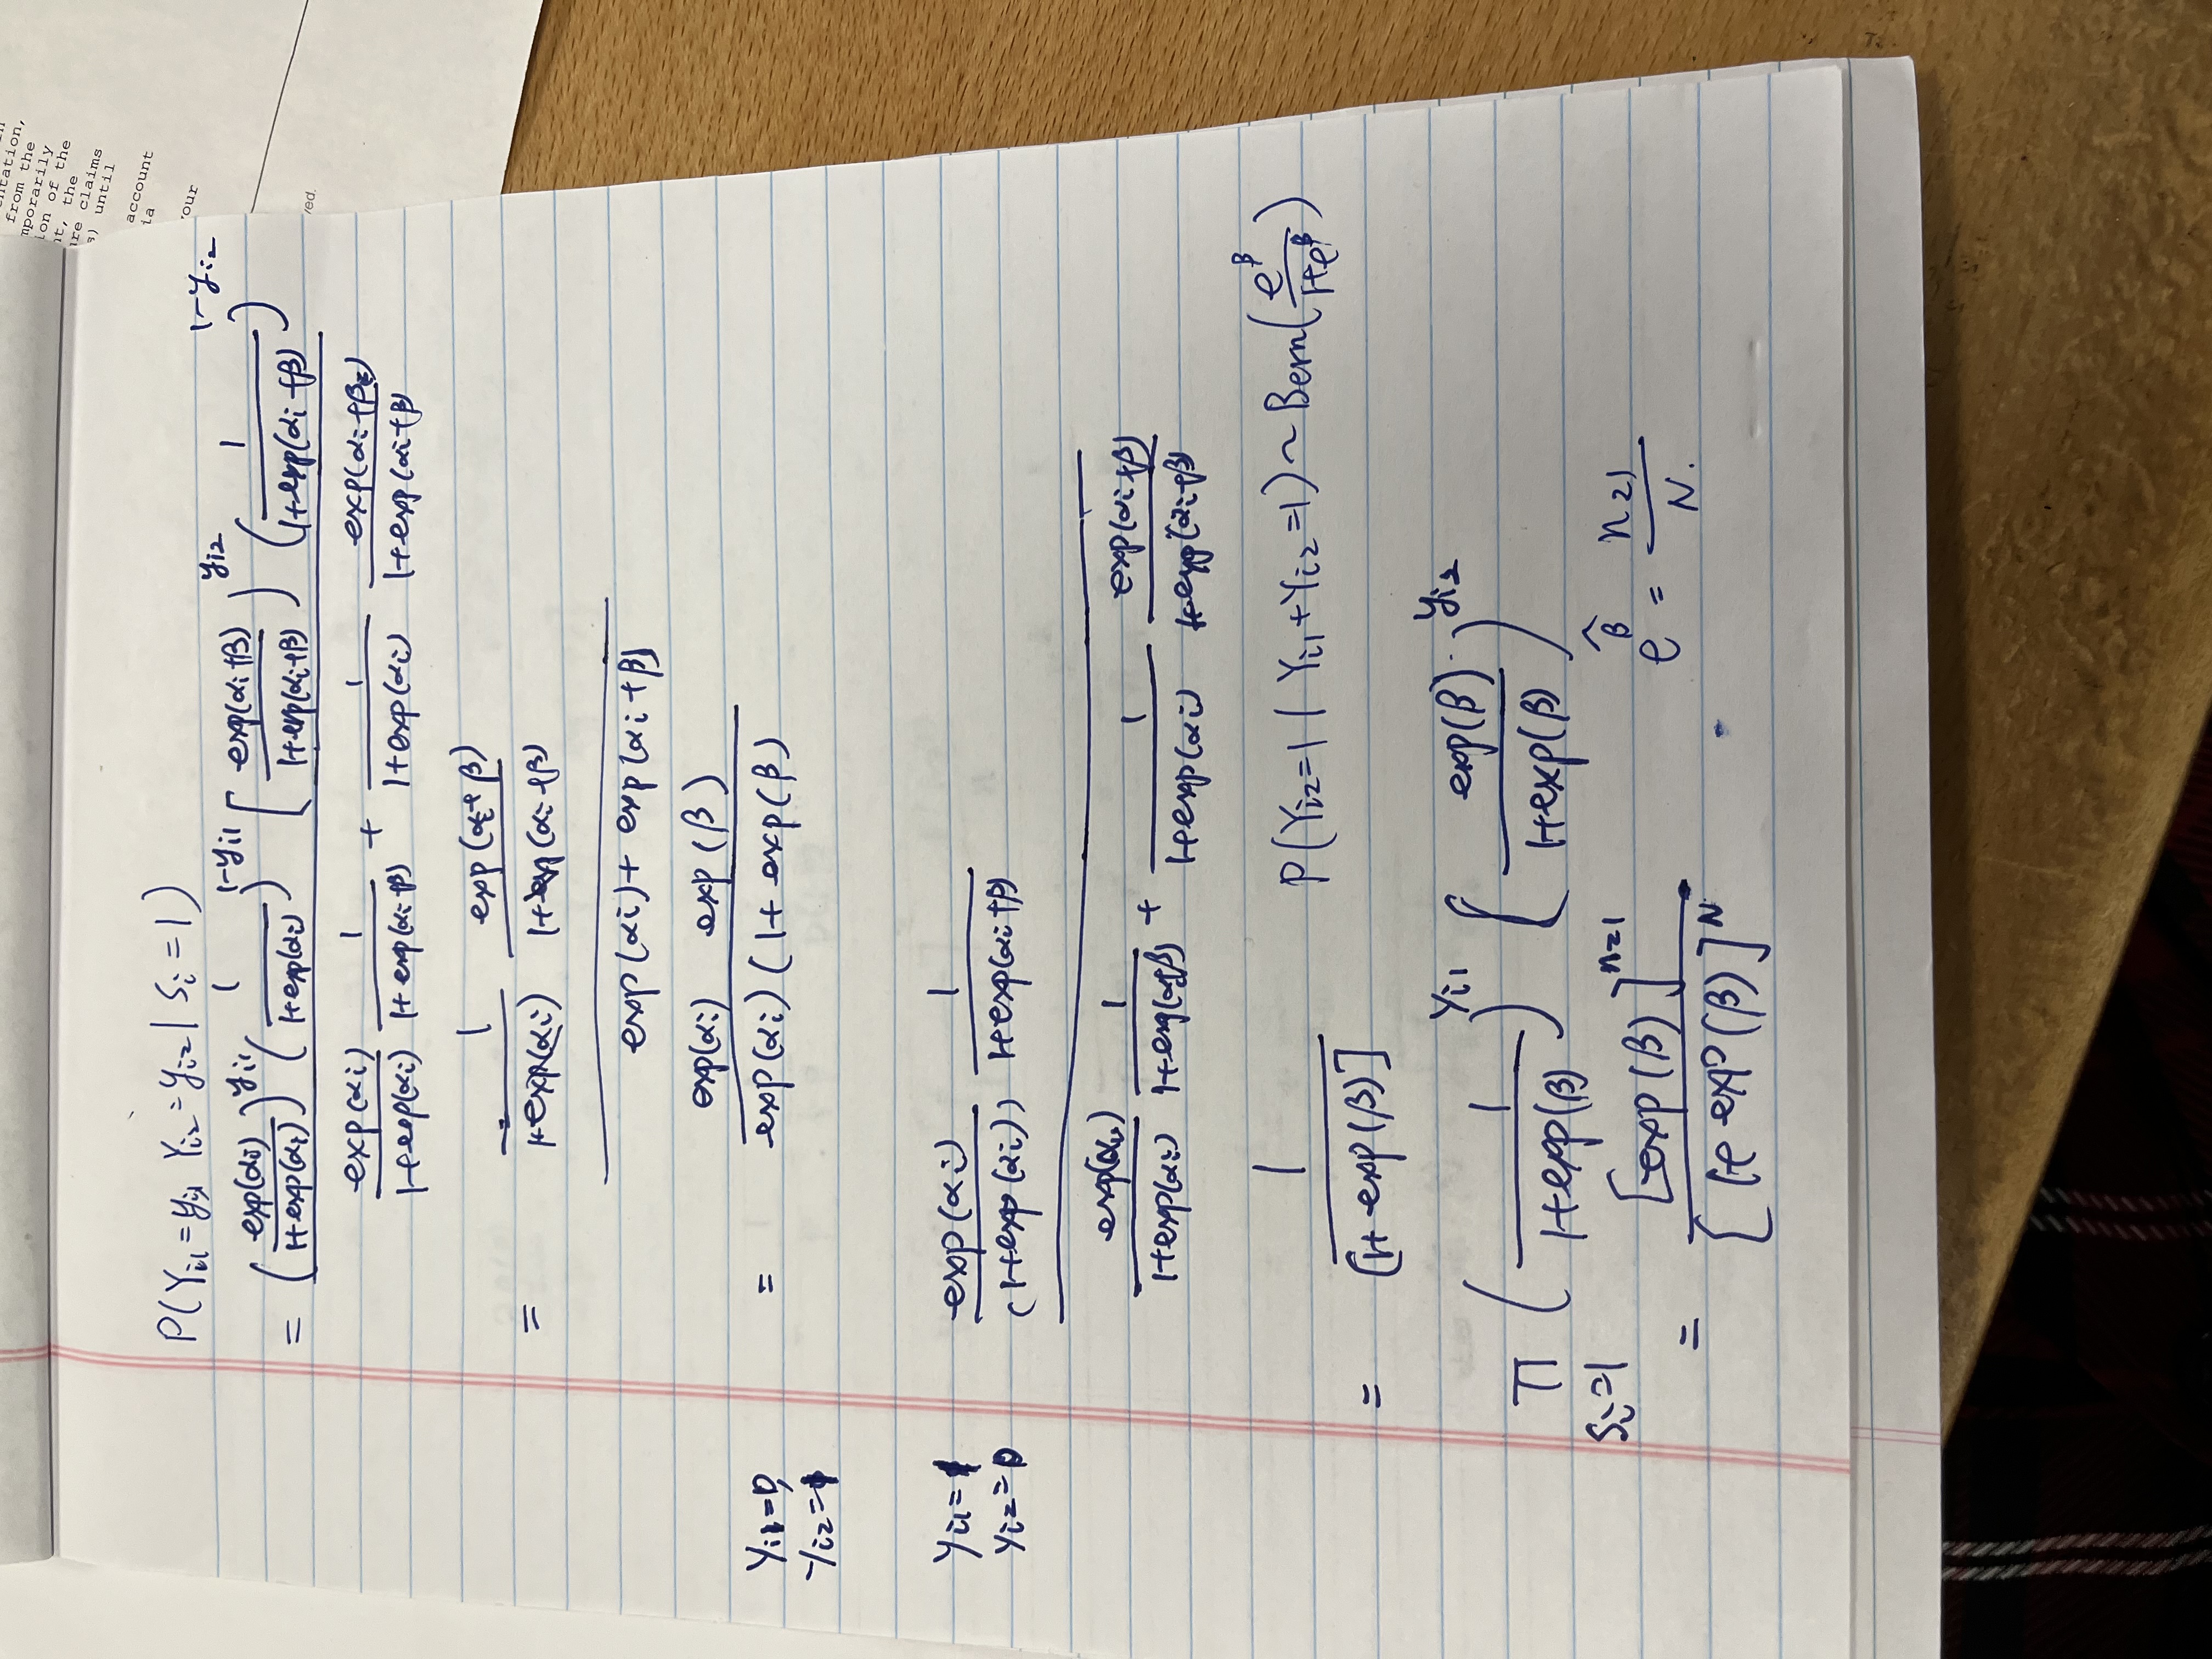 ntation,
from the
mporarily
ion of the
nt, the
ure claims
s) until
account
ia
our
ved.
P(Yi1=yi1 Yi2=yi2 | Si=1)
= (exp(αi)/1+exp(αi))^yi1 (1/1+exp(αi))^1-yi1 [exp(αi+β)/1+exp(αi+β))^yi2 (1/1+exp(αi+β))^1-yi2
exp(αi)/1+exp(αi) 1/1+exp(αi+β) + 1/1+exp(αi) exp(αi+β)/1+exp(αi+β)
= 1/1+exp(αi) exp(αi+β)/1+exp(αi+β)
exp(αi)+exp(αi+β)
Yi1=0,
Yi2=1
= exp(αi) exp(β)/exp(αi)(1+exp(β)
Yi1=1
Yi2=0
exp(αi)/(1+exp(αi)) 1/1+exp(αi+β)
exp(αi)/1+exp(αi) 1/1+exp(αi+β) + 1/1+exp(αi) exp(αi+β)/1+exp(αi+β)
= 1/[1+exp(β)]
P(Yi2=1 | Yi1+Yi2=1) ~ Bern(e^β/1+e^β)
Π Si=1 (1/1+exp(β))^yi1 (exp(β)/1+exp(β))^yi2
= [exp(β)]^n21/[1+exp(β)]^N
e^β̂ = n21/N.